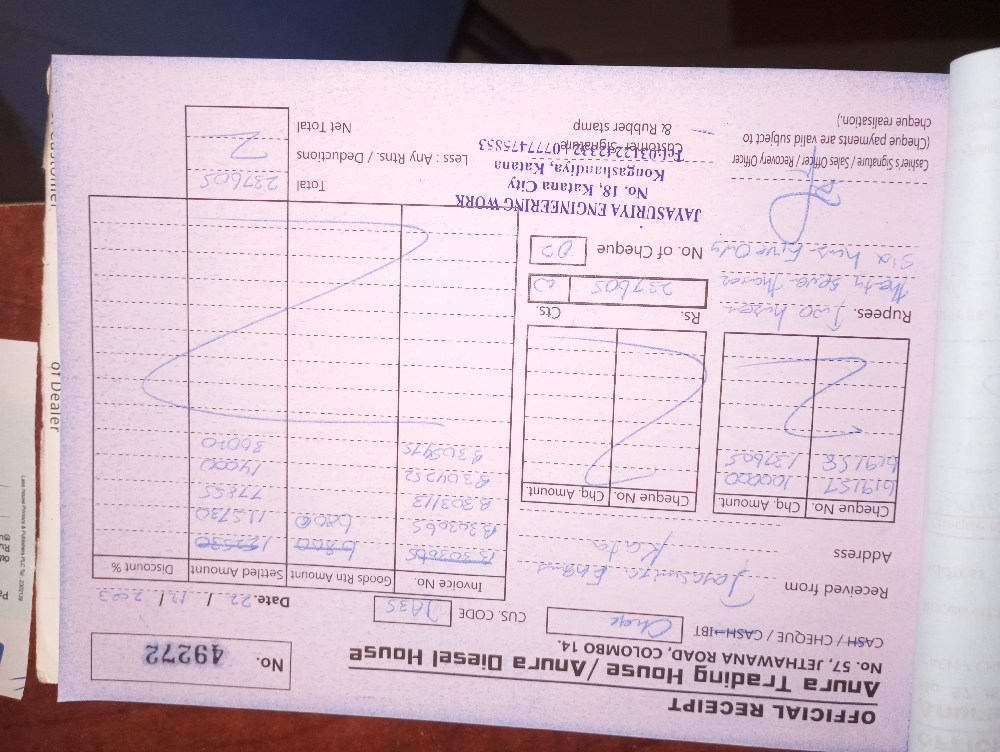 OFFICIAL RECEIPT
Anura Trading House / Anura Diesel House
NO. 57, JETHAWANA ROAD, COLOMBO 14.
No. 49272
CASH / CHEQUE / CASH IBT
CUS. CODE JA35
Date. 22 / 12 / 2023
Received from
Address Kata
Cheque No. Chq. Amount
619157 100000
619158 137605
Cheque No. Chq. Amount.
Invoice No. Goods Rtn Amount Settled Amount Discount %
B303665 6800
B303665 6800 115730
B303113 77855
B304252 14000
B305475 30020
Rupees. Two
Rs. Cts.
237605
No. of Cheque 02
JAYASURIYA ENGINEERING WORK
No. 18, Katana City
Kongashandiya, Katana
Tel:0312242332 | 0777475853
Total 237605
Less : Any Rtns. / Deductions
Net Total
Cashier's Signature / Sales Officer / Recovery Officer
(Cheque payments are valid subject to
cheque realisation.)
Customer Signature
& Rubber stamp
of Dealer